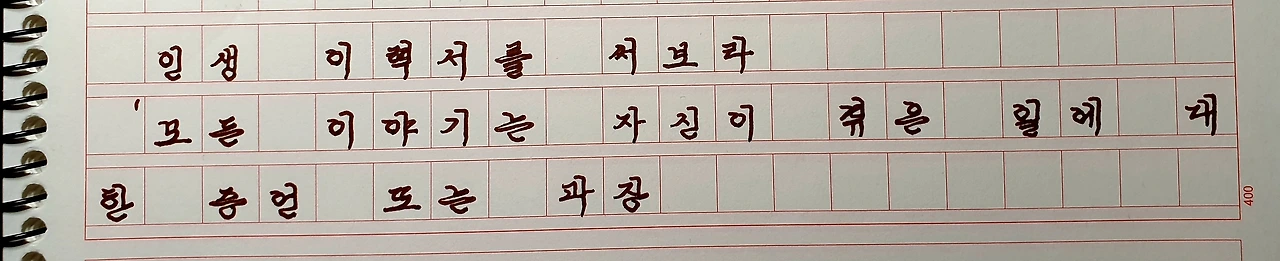 인생 이력서를 써보라
'모든 이야기는 자신이 겪은 일에 대
한 증언 또는 과장
400